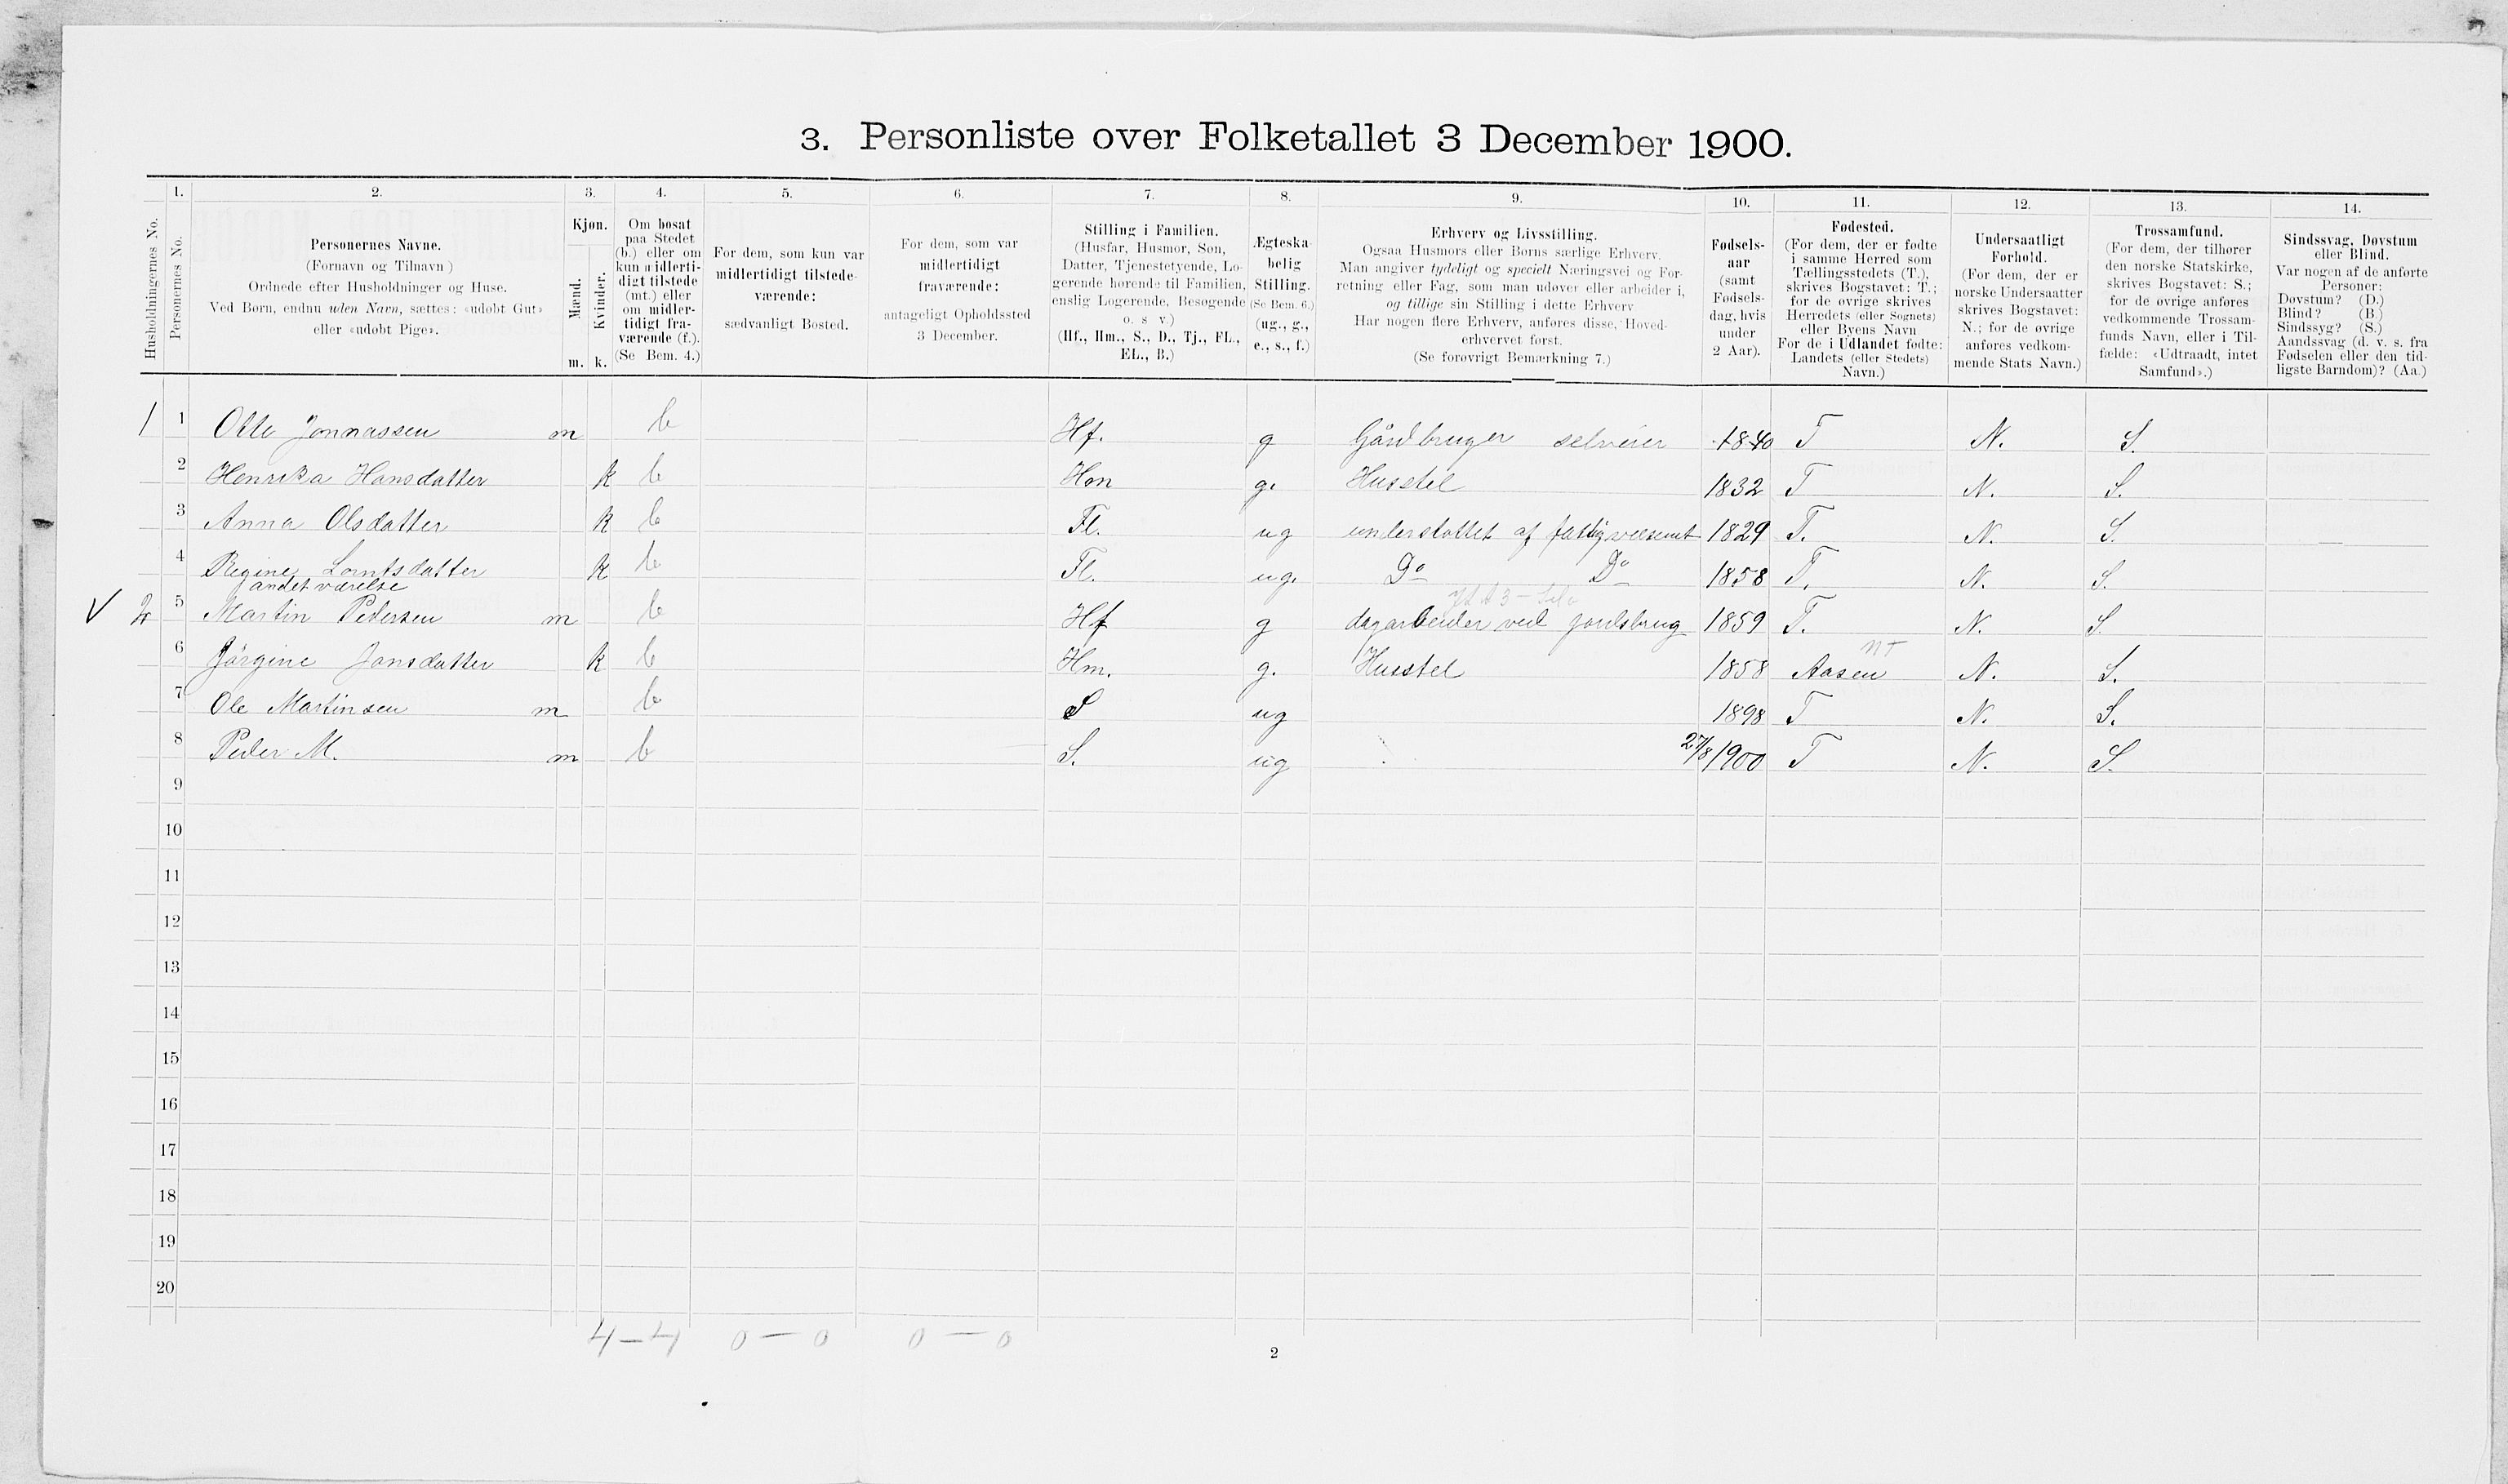 3. Personliste over Folketallet 3 December 1900.
1. 2. 3. 4. 5. 6. 7. 8. 9. 10. 11. 12. 13. 14.
Husholdningernes No.
Personernes No.
Personernes Navne.
(Fornavn og Tilnavn)
Ordnede efter Husholdninger og Huse.
Ved Børn, endnu uden Navn, sættes: «udøbt Gut»
eller «udøbt Pige».
Kjøn.
Mænd.
Kvinder.
m. k.
Om bosat
paa Stedet
(b.) eller om
kun midlerti-
digt tilstede
(mt.) eller
om midler-
tidigt fra-
værende (f.).
(Se Bem. 4.)
For dem, som kun var
midlertidigt tilstede-
værende:
sædvanligt Bosted.
For dem, som var
midlertidigt
fraværende:
antageligt Opholdssted
3 December.
Stilling i Familien.
(Husfar, Husmor, Søn,
Datter, Tjenestetyende, Lo-
gerende hørende til Familien,
enslig Logerende, Besøgende
o. s v.)
(Hf., Hm., S., D., Tj., FL.,
EL., B.)
Ægteska-
belig
Stilling.
(Se Bem. 6.)
(ug., g.,
e., s., f.)
Erhverv og Livsstilling.
Ogsaa Husmors eller Børns særlige Erhverv.
Man angiver tydeligt og specielt Næringsvei og For-
retning eller Fag, som man udøver eller arbeider i,
og tillige sin Stilling i dette Erhverv
Har nogen flere Erhverv, anføres disse, Hoved-
erhvervet først.
(Se forøvrigt Bemærkning 7.)
Fødsels-
aar
(samt
Fødsels-
dag, hvis
under
2 Aar).
Fødested.
(For dem, der er fødte
i samme Herred som
Tællingsstedets (T.),
skrives Bogstavet: T.;
for de øvrige skrives
Herredets (eller Sognets)
eller Byens Navn
For de i Udlandet fødte:
Landets (eller Stedets)
Navn.)
Undersaatligt
Forhold.
(For dem, der er
norske Undersaatter
skrives Bogstavet:
N.; for de øvrige
anføres vedkom-
mende Stats Navn.)
Trossamfund.
(For dem, der tilhører
den norske Statskirke,
skrives Bogstavet: S.;
for de øvrige anføres
vedkommende Trossam-
funds Navn, eller i Til-
fælde: «Udtraadt, intet
Samfund».)
Sindssvag, Døvstum
eller Blind.
Var nogen af de anførte
Personer:
Døvstum? (D.)
Blind? (B.)
Sindssyg? (S.)
Aandssvag (d. v. s. fra
Fødselen eller den tid-
ligste Barndom)? (Aa.)
1 1 Otte Jonnassen m b Hf. g Gårdbruger selveier 1840 T N. S.
2 Henrika Hansdatter k b Hm g. Husstel 1832 T N. S.
3 Anna Olsdatter k b Fl. ug understøttet af fattigvæsenet 1829 T. N. S.
4 Regine Lorntsdatter k b Fl. ug. Do Do 1858 T. N. S.
andet værelse
V 2 5 Martin Pedersen m b Hf g dagarbeider ved jordsbrug 1859 T. N. S.
NT
6 Jørgine Jonsdatter k b Hm. g. Husstel 1858 Aasen N. S.
7 Ole Martinsen m b S ug 1898 T N. S.
8 Peder M. m b S. ug 27/8 1900 T N. S.
9
10
11
12
13
14
15
16
17
18
19
20
4 – 4 0 – 0 0 – 0
2